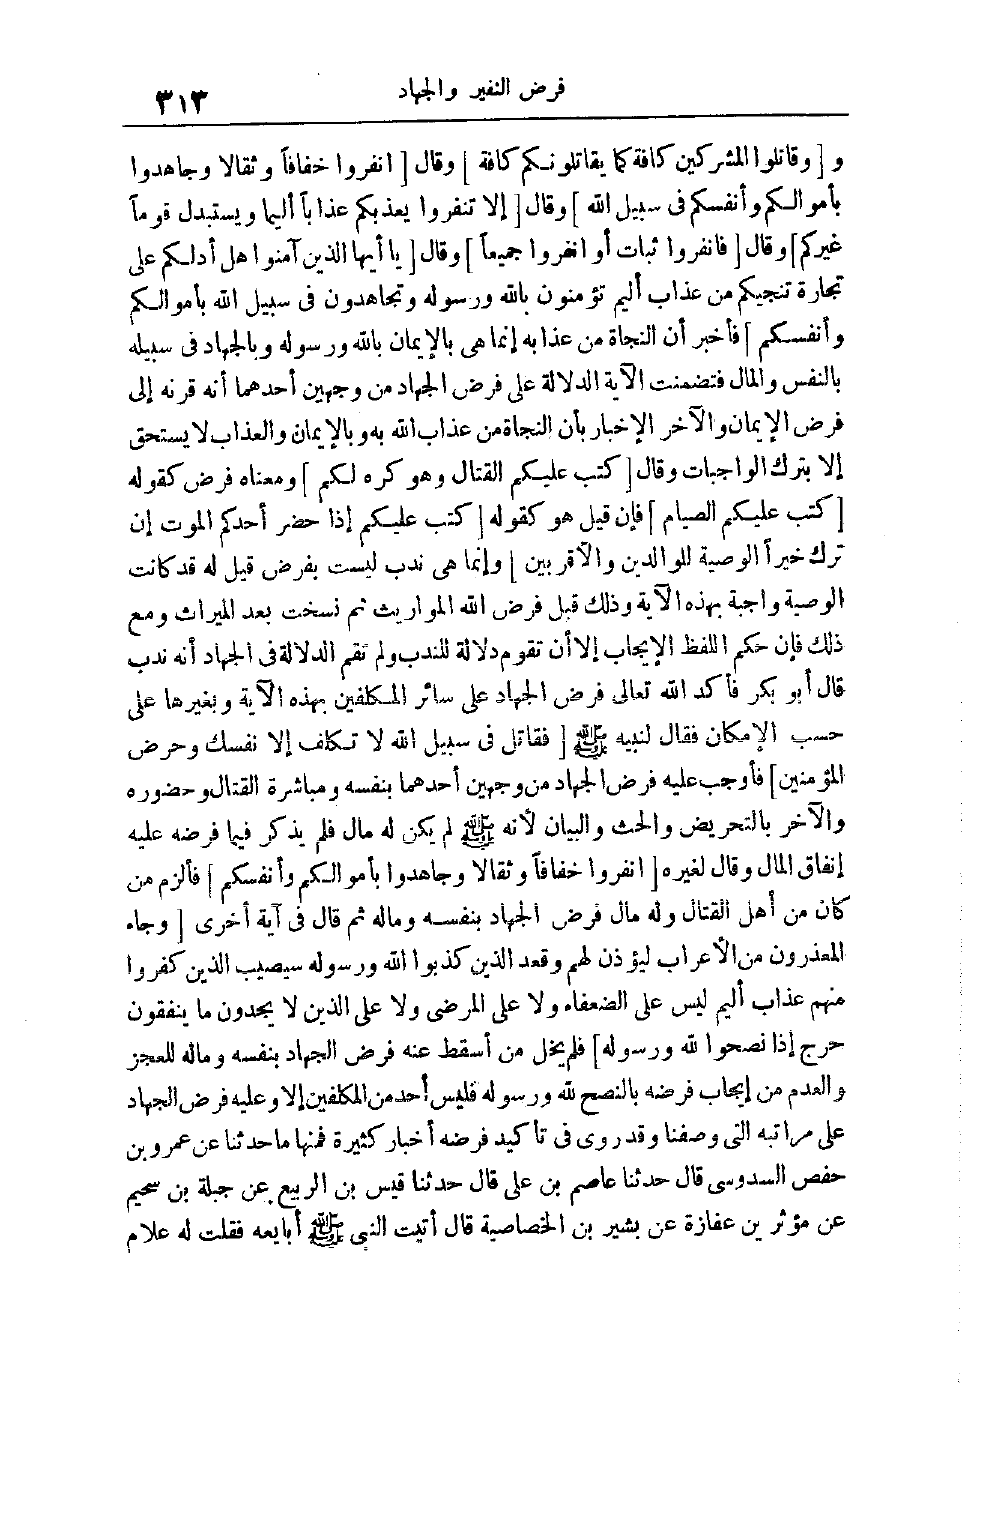 فرض النفير والجهاد ٣١٣
و [ وقاتلوا المشركين كافة كما يقاتلونكم كافة ] وقال [ انفروا خفافاً وثقالا وجاهدوا
بأموالكم وأنفسكم فى سبيل الله ] وقال [ إلا تنفروا يعذبكم عذاباً أليما ويستبدل قوماً
غيركم ] وقال [ فانفروا ثبات أو انفروا جميعاً ] وقال [ يا أيها الذين آمنوا هل أدلكم على
تجارة تنجيكم من عذاب أليم تؤمنون بالله ورسوله وتجاهدون فى سبيل الله بأموالكم
وأنفسكم ] فأخبر أن النجاة من عذابه إنما هى بالإيمان بالله ورسوله وبالجهاد فى سبيله
بالنفس والمال فتضمنت الآية الدلالة على فرض الجهاد من وجهين أحدهما أنه قرنه إلى
فرض الإيمان والآخر الإخبار بأن النجاة من عذاب الله به وبالإيمان والعذاب لا يستحق
إلا بترك الواجبات وقال [ كتب عليكم القتال وهو كره لكم ] ومعناه فرض كقوله
[ كتب عليكم الصيام ] فإن قيل هو كقوله [ كتب عليكم إذا حضر أحدكم الموت إن
ترك خيراً الوصية للوالدين والأقربين ] وإنما هى ندب ليست بفرض قيل له قد كانت
الوصية واجبة بهذه الآية وذلك قبل فرض الله المواريث ثم نسخت بعد الميراث ومع
ذلك فإن حكم اللفظ الإيجاب إلا أن تقوم دلالة للندب ولم تقم الدلالة فى الجهاد أنه ندب
قال أبو بكر فأكد الله تعالى فرض الجهاد على سائر المكلفين بهذه الآية وبغيرها على
حسب الإمكان فقال لنبيه ﷺ [ فقاتل فى سبيل الله لا تكلف إلا نفسك وحرض
المؤمنين ] فأوجب عليه فرض الجهاد من وجهين أحدهما بنفسه ومباشرة القتال وحضوره
والآخر بالتحريض والحث والبيان لأنه ﷺ لم يكن له مال فلم يذكر فيما فرضه عليه
إنفاق المال وقال لغيره [ انفروا خفافاً وثقالا وجاهدوا بأموالكم وأنفسكم ] فألزم من
كان من أهل القتال وله مال فرض الجهاد بنفسه وماله ثم قال فى آية أخرى [ وجاء
المعذرون من الأعراب ليؤذن لهم وقعد الذين كذبوا الله ورسوله سيصيب الذين كفروا
منهم عذاب أليم ليس على الضعفاء ولا على المرضى ولا على الذين لا يجدون ما ينفقون
حرج إذا نصحوا لله ورسوله ] فلم يخل من أسقط عنه فرض الجهاد بنفسه وماله للعجز
والعدم من إيجاب فرضه بالنصح لله ورسوله فليس أحد من المكلفين إلا وعليه فرض الجهاد
على مراتبه التى وصفنا وقد روى فى تأكيد فرضه أخبار كثيرة فمنها ما حدثنا عن عمرو بن
حفص السدوسى قال حدثنا عاصم بن على قال حدثنا قيس بن الربيع عن جبلة بن سحيم
عن مؤثر بن عفازة عن بشير بن الخصاصية قال أتيت النبى ﷺ أبايعه فقلت له علام